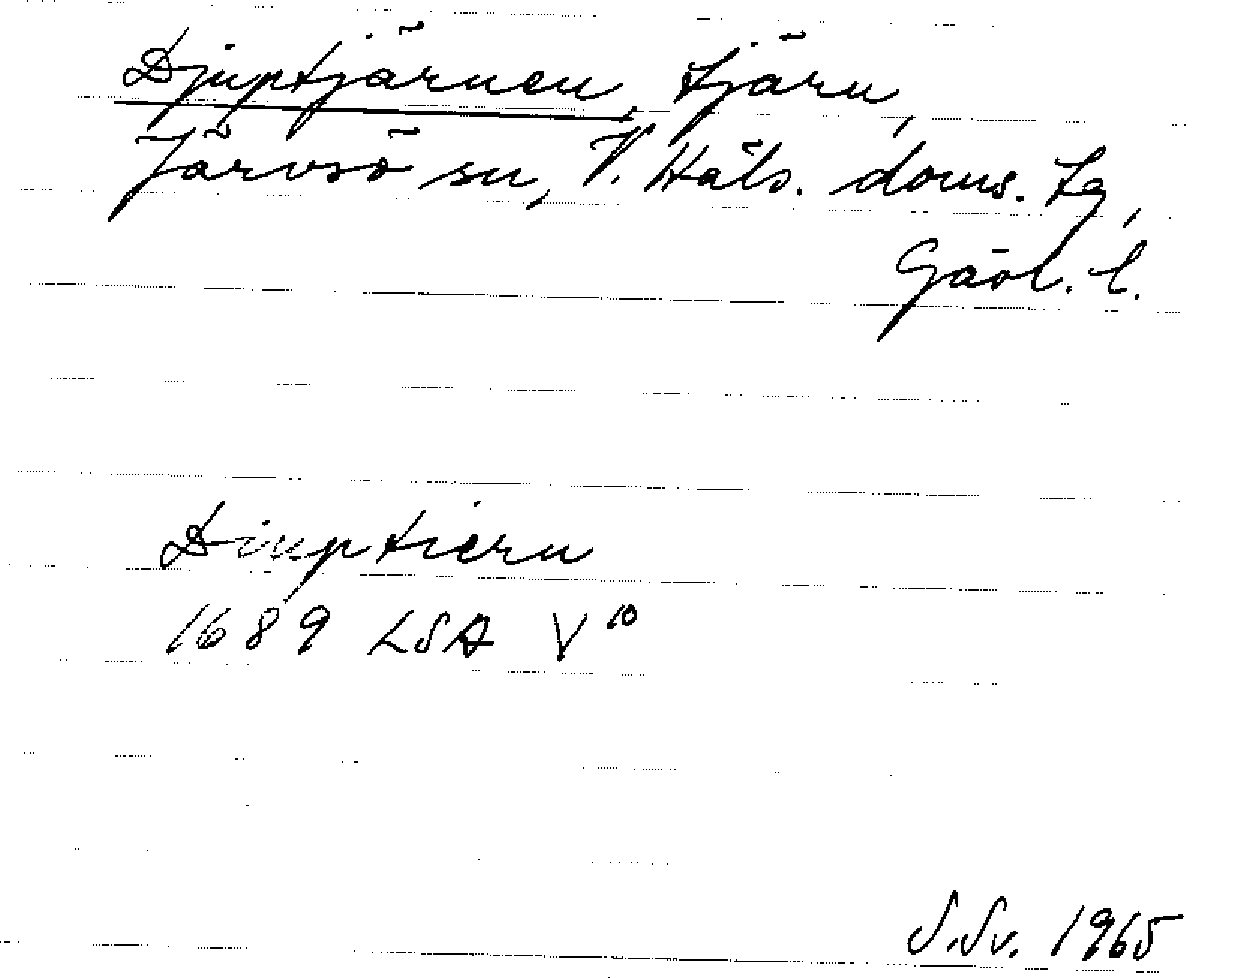 Djuptjärnen, tjärn,
Järvsö sn, V. Häls. doms. tg,
Gävl. l.
Diuptiern
1689 LSA V 10
S.Sv. 1965